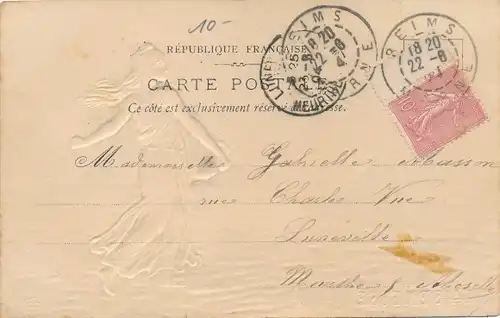 10-
RÉPUBLIQUE FRANÇAISE
CARTE POSTALE
Ce côté est exclusivement réservé à l'adresse.
REIMS
18 20
22 -6
MARNE
REIMS
18 20
22 -6
NE
LUNEV
MEURTHE
10
Mademoiselle Gabrielle
rue Charles Vue
Lunéville
Meurthe & Moselle